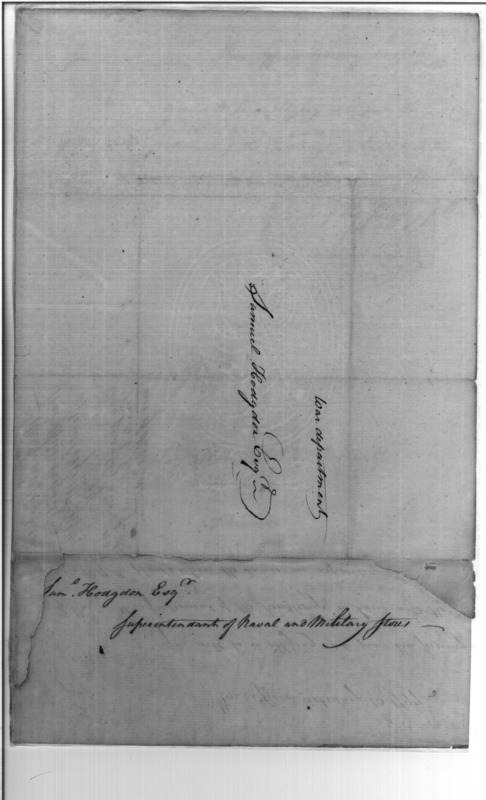 War department
Samuel Hodgdon Esqr
Saml. Hodgdon Esqr.
Superintendant of Naval and Military Stores